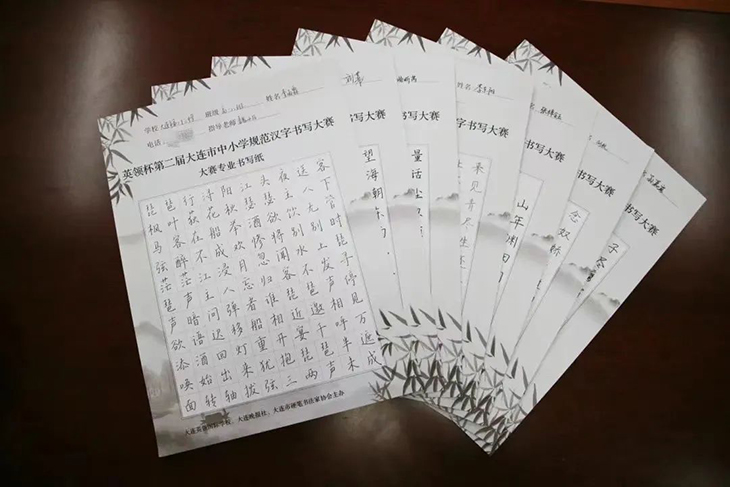 学校 班级 姓名
电话: 指导老师
英领杯第二届大连市中小学规范汉字书写大赛
大赛专业书写纸
琵琶行浔阳江头夜送客
枫叶荻花秋瑟瑟主人下
马客在船举酒欲饮无管
弦醉不成欢惨将别别时
茫茫江浸月忽闻水上琵
琶声主人忘归客不发寻
声暗问弹者谁琵琶声停
欲语迟移船相近邀相见
添酒回灯重开宴千呼万
唤始出来犹抱琵琶半遮
面转轴拨弦三两声未成
大连英领国际学校、大连晚报社、大连市硬笔书法家协会主办
书写大赛
望
海
书写大赛
量
话
字书写大赛
书写大赛
山
年
书写大赛
念
奴
娇
书写大赛
子